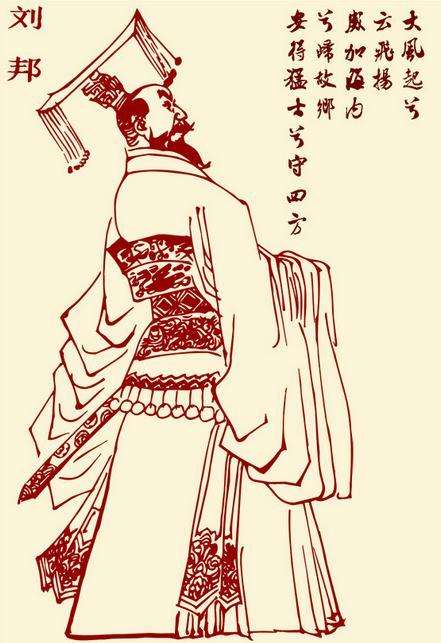 刘邦
大風起兮
云飛揚
威加海内
兮歸故鄉
安得猛士兮守四方